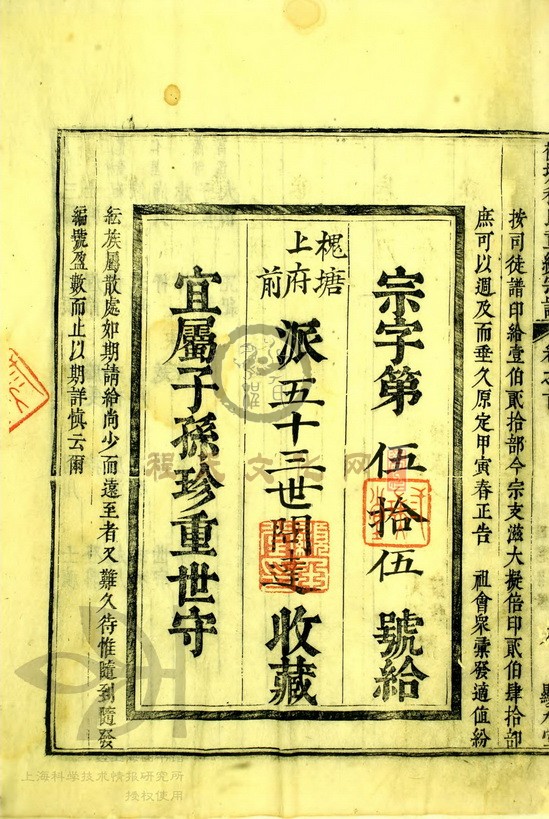 按司徒譜印給壹伯貳拾部今宗支滋大擬倍印貳伯肆拾部
庶可以週及而垂久原定甲寅春正告　祖會眾彙發適值紛
宗字第伍拾伍號給
槐塘
上府
前
派五十三世問達收藏
宜屬子孫珍重世守
紜族屬散處如期請給尚少而遠至者又難久待惟隨到隨發
編號盈數而止以期詳慎云爾
程氏文化网
上海科学技术情报研究所
授权使用